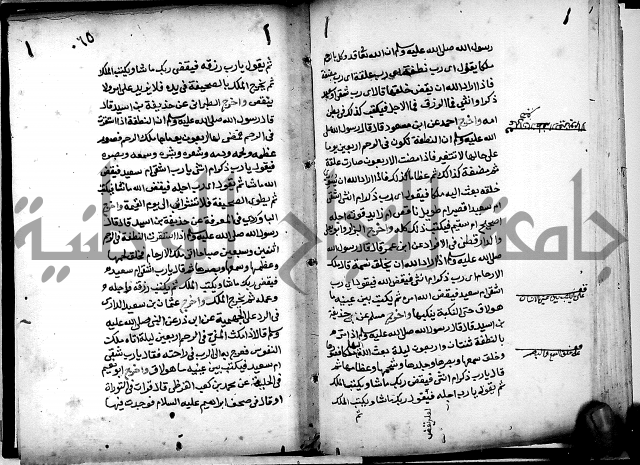 رسول الله صلى الله عليه وسلم ان الله تعالى قد وكل بالرحم
ملكا يقول اى رب نطفة اى رب علقة اى رب مضغة
فاذا اراد الله ان يقضى خلقها قال اى رب شقى او سعيد
ذكر او انثى فما الرزق فما الاجل فيكتب كذلك فى بطن
امه واخرج احمد عن ابن مسعود قال قال رسول الله صلى
الله عليه وسلم ان النطفة تكون فى الرحم اربعين يوما
على حالها لا تتغير فاذا مضت الاربعون صارت علقة
ثم مضغة كذلك ثم عظاما كذلك فاذا اراد الله ان
خلقه بعث اليه ملكا فيقول اى رب ذكر ام انثى اشقى
ام سعيد اقصير ام طويل ناقص ام زايد قوته اجله
اصحيح ام سقيم فيكتب ذلك كله واخرج البزار وابو يعلى
والدارقطنى فى الافراد عن ابن عمر قال قال رسول الله
صلى الله عليه وسلم اذا اراد الله ان يخلق نسمة قال ملك
الارحام اى رب ذكر ام انثى فيقضى الله فيقول اى رب
اشقى ام سعيد فيقضى الله امره ثم يكتب بين عينيه ما
هو لاق حتى النكبة ينكبها واخرج مسلم عن حذيفة
بن اسيد قال قال رسول الله صلى الله عليه وسلم اذا مر
بالنطفة ثنتان واربعون ليلة بعث الله اليها ملكا
وخلق سمعها وبصرها وجلدها ولحمها وعظامها ثم
قال يارب ذكر ام انثى فيقضى ربك ما شا ويكتب الملك
ثم يقول يارب اجله فيقول ربك ما شا ويكتب الملك
ثم
٠٦٥
ثم يقول يارب رزقه فيقضى ربك ما شا ويكتب الملك
ثم يخرج الملك بالصحيفة فى يده فلا يزيد على امر ولا
ينقص واخرج الطبرانى عن حذيفة بن اسيد قال
قال رسول الله صلى الله عليه وسلم ان النطفة اذا استقرت
فى الرحم فمضى لها اربعون يوما جا ملك الرحم فصور
عظمه ولحمه ودمه وشعره وبشره وسمعه وبصره
فيقول يارب ذكر ام انثى يارب اشقى ام سعيد فيقضى
الله ما شا ثم يقول اى رب اجله فيقضى الله ما شا فيكتب
ثم يطوى الصحيفة فلا تنشر الى يوم القيمة واخرج
الباوردى فى المعرفة عن حذيفة بن اسيد قال قال
رسول الله صلى الله عليه وسلم اذا استقرت النطفة فى الرحم
اثنين وسبعين صباحا اتى ملك الارحام فخلق لحمها
وعظمها وسمعها وبصرها ثم قال يارب اشقى ام سعيد
فيقضى ربك ما شا ويكتب الملك ثم يكتب رزقه واجله و
وعمله ثم يخرج الملك واخرج عثمان بن سعيد الدارمى
فى الرد على الجهمية عن ابى ذر عن النبى صلى الله عليه
وسلم قال اذا مكث المنى فى الرحم اربعين ليلة اتاه ملك
النفوس فعرج به الى الرب فى راحته فقال يارب شقى
ام سعيد فيكتب بين عينيه ما هو لاق واخرج ابو نعيم
فى الحلية عن محمد بن كعب القرظى قال قرات فى التوراة
او قال فى صحف ابراهيم عليه السلام فوجدت فيها
جامعة النجاح الوطنية